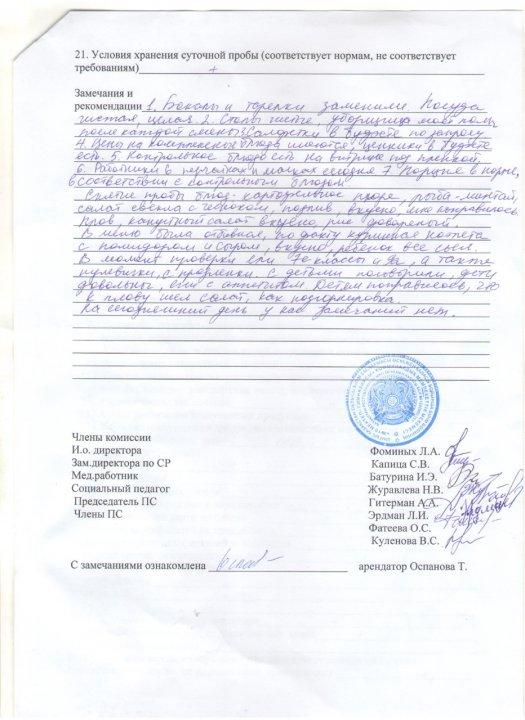 21. Условия хранения суточной пробы (соответствует нормам, не соответствует
требованиям) +
Замечания и
рекомендации 1. Бокалы и тарелки заменили. Посуда
чистая, целая. 2. Столы чистые, уборщица моет полы
после каждой смены. 3. Салфетки в буфете по запросу
4. Цены на комплексные блюда имеются, ценники в буфете
есть. 5. Контрольное блюдо есть на витрине под пленкой.
6. Работники в перчатках и масках сегодня 7. Порции в норме,
в соответствии с контрольным блюдом.
Снятие пробы блюд: картофельное пюре, рыба-минтай,
салат свекла с чесноком, вкусно, понравилось.
Плов, капустный салат вкусно, рис доваренный.
В меню была отбивная, по факту куриная котлета
с помидором и сыром, вкусно, ребенок все съел.
В момент проверки ели 7е классы и а также
нулевички, с продленки. С детьми поговорили, дети
довольны, ели с аппетитом. Детям понравилось, что
к плову шел салат, как подгарнировка.
На сегодняшний день у нас замечаний нет.
Члены комиссии
И.о. директора Фоминых Л.А.
Зам.директора по СР Капица С.В.
Мед.работник Батурина И.Э.
Социальный педагог Журавлева Н.В.
Председатель ПС Гитерман А.А.
Члены ПС Эрдман Л.И.
Фатеева О.С.
Куленова В.С.
С замечаниями ознакомлена арендатор Оспанова Т.